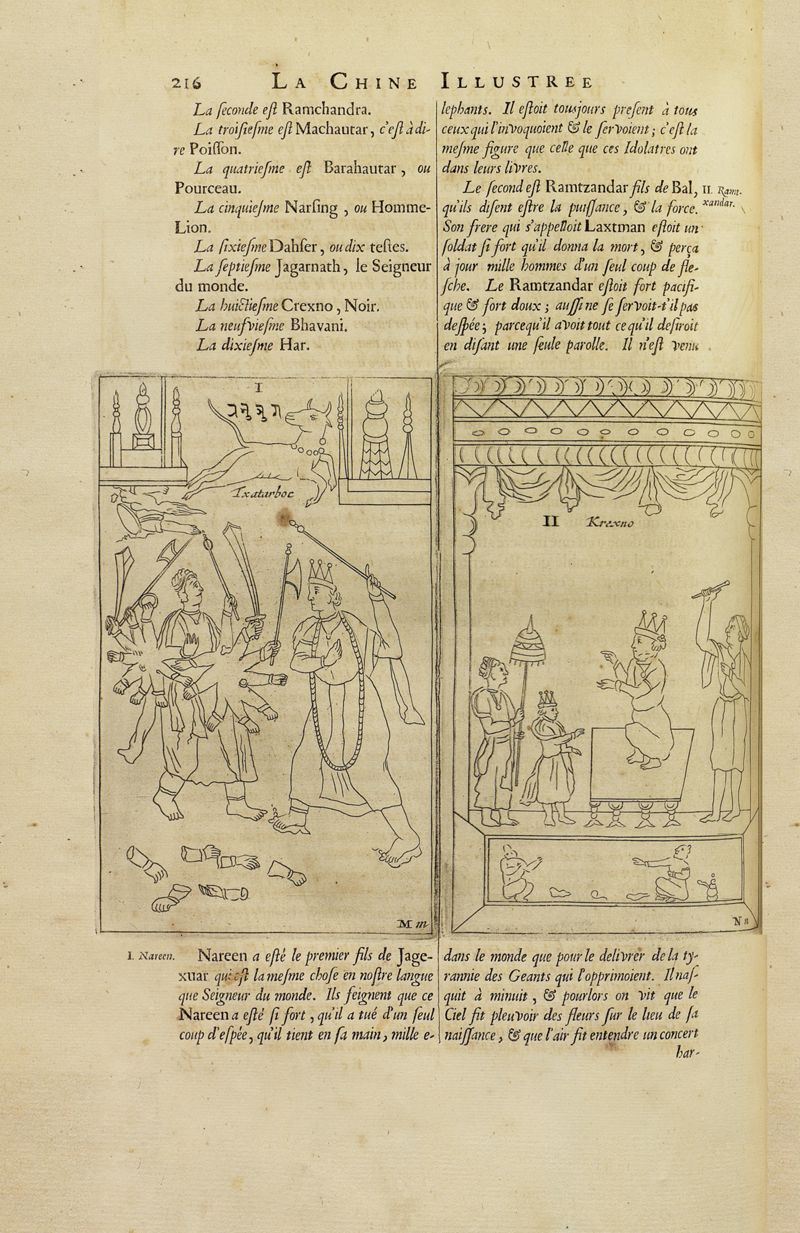 216 LA CHINE ILLUSTREE
La ſeconde eſt Ramchandra.
La troiſieſme eſt Machautar, c'eſt à di-
re Poiſſon.
La quatrieſme eſt Barahautar, ou
Pourceau.
La cinquieſme Narſing, ou Homme-
Lion.
La ſixieſme Dahſer, ou dix teſtes.
La ſeptieſme Jagarnath, le Seigneur
du monde.
La huictieſme Crexno, Noir.
La neufvieſme Bhavani.
La dixieſme Har.
I
Ixatarboc
M m
I. Nareen.
Nareen a eſté le premier fils de Jage-
xuar qui eſt la meſme choſe en noſtre langue
que Seigneur du monde. Ils feignent que ce
Nareen a eſté ſi fort, qu'il a tué d'un ſeul
coup d'eſpée, qu'il tient en ſa main, mille e-
lephants. Il eſtoit tousjours preſent à tous
ceux qui l'invoquoient & le ſervoient; c'eſt la
meſme figure que celle que ces Idolatres ont
dans leurs livres.
Le ſecond eſt Ramtzandar fils de Bal,
qu'ils diſent eſtre la puiſſance, & la force.
Son frere qui s'appelloit Laxtman eſtoit un
ſoldat ſi fort qu'il donna la mort, & perça
à jour mille hommes d'un ſeul coup de fle-
ſche. Le Ramtzandar eſtoit fort pacifi-
que & fort doux; auſſi ne ſe ſervoit-t'il pas
deſpée; parcequ'il avoit tout ce qu'il deſiroit
en diſant une ſeule parolle. Il n'eſt venu
II. Ramt-
xandar.
II Krexno
N n
dans le monde que pour le delivrer de la ty-
rannie des Geants qui l'opprimoient. Il naſ-
quit à minuit, & pourlors on vit que le
Ciel fit pleuvoir des fleurs ſur le lieu de ſa
naiſſance, & que l'air fit entendre un concert
har-